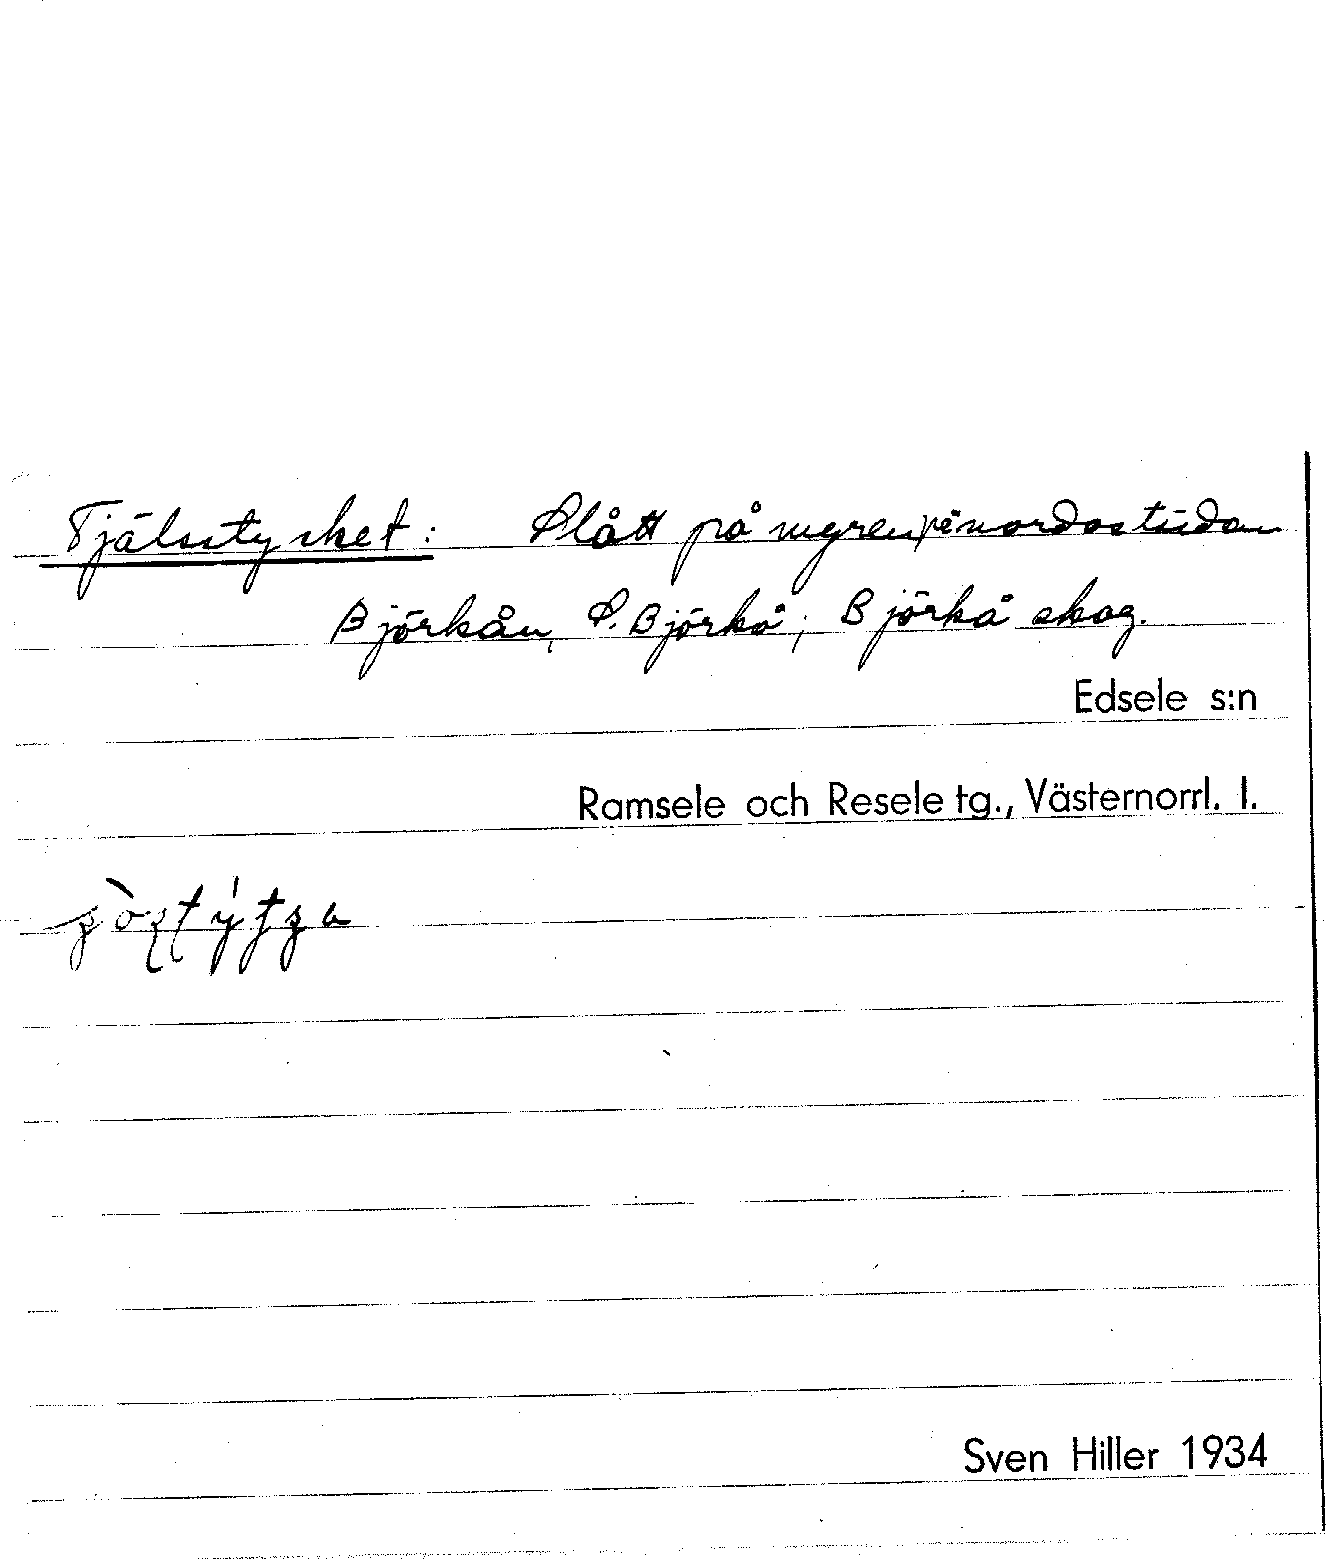 Tjälsstycket: Slått på myren, på nordostsidan
Björkån, S. Björkå; Björkå skog.
Edsele s:n
Ramsele och Resele tg., Västernorrl. l.
Sven Hiller 1934